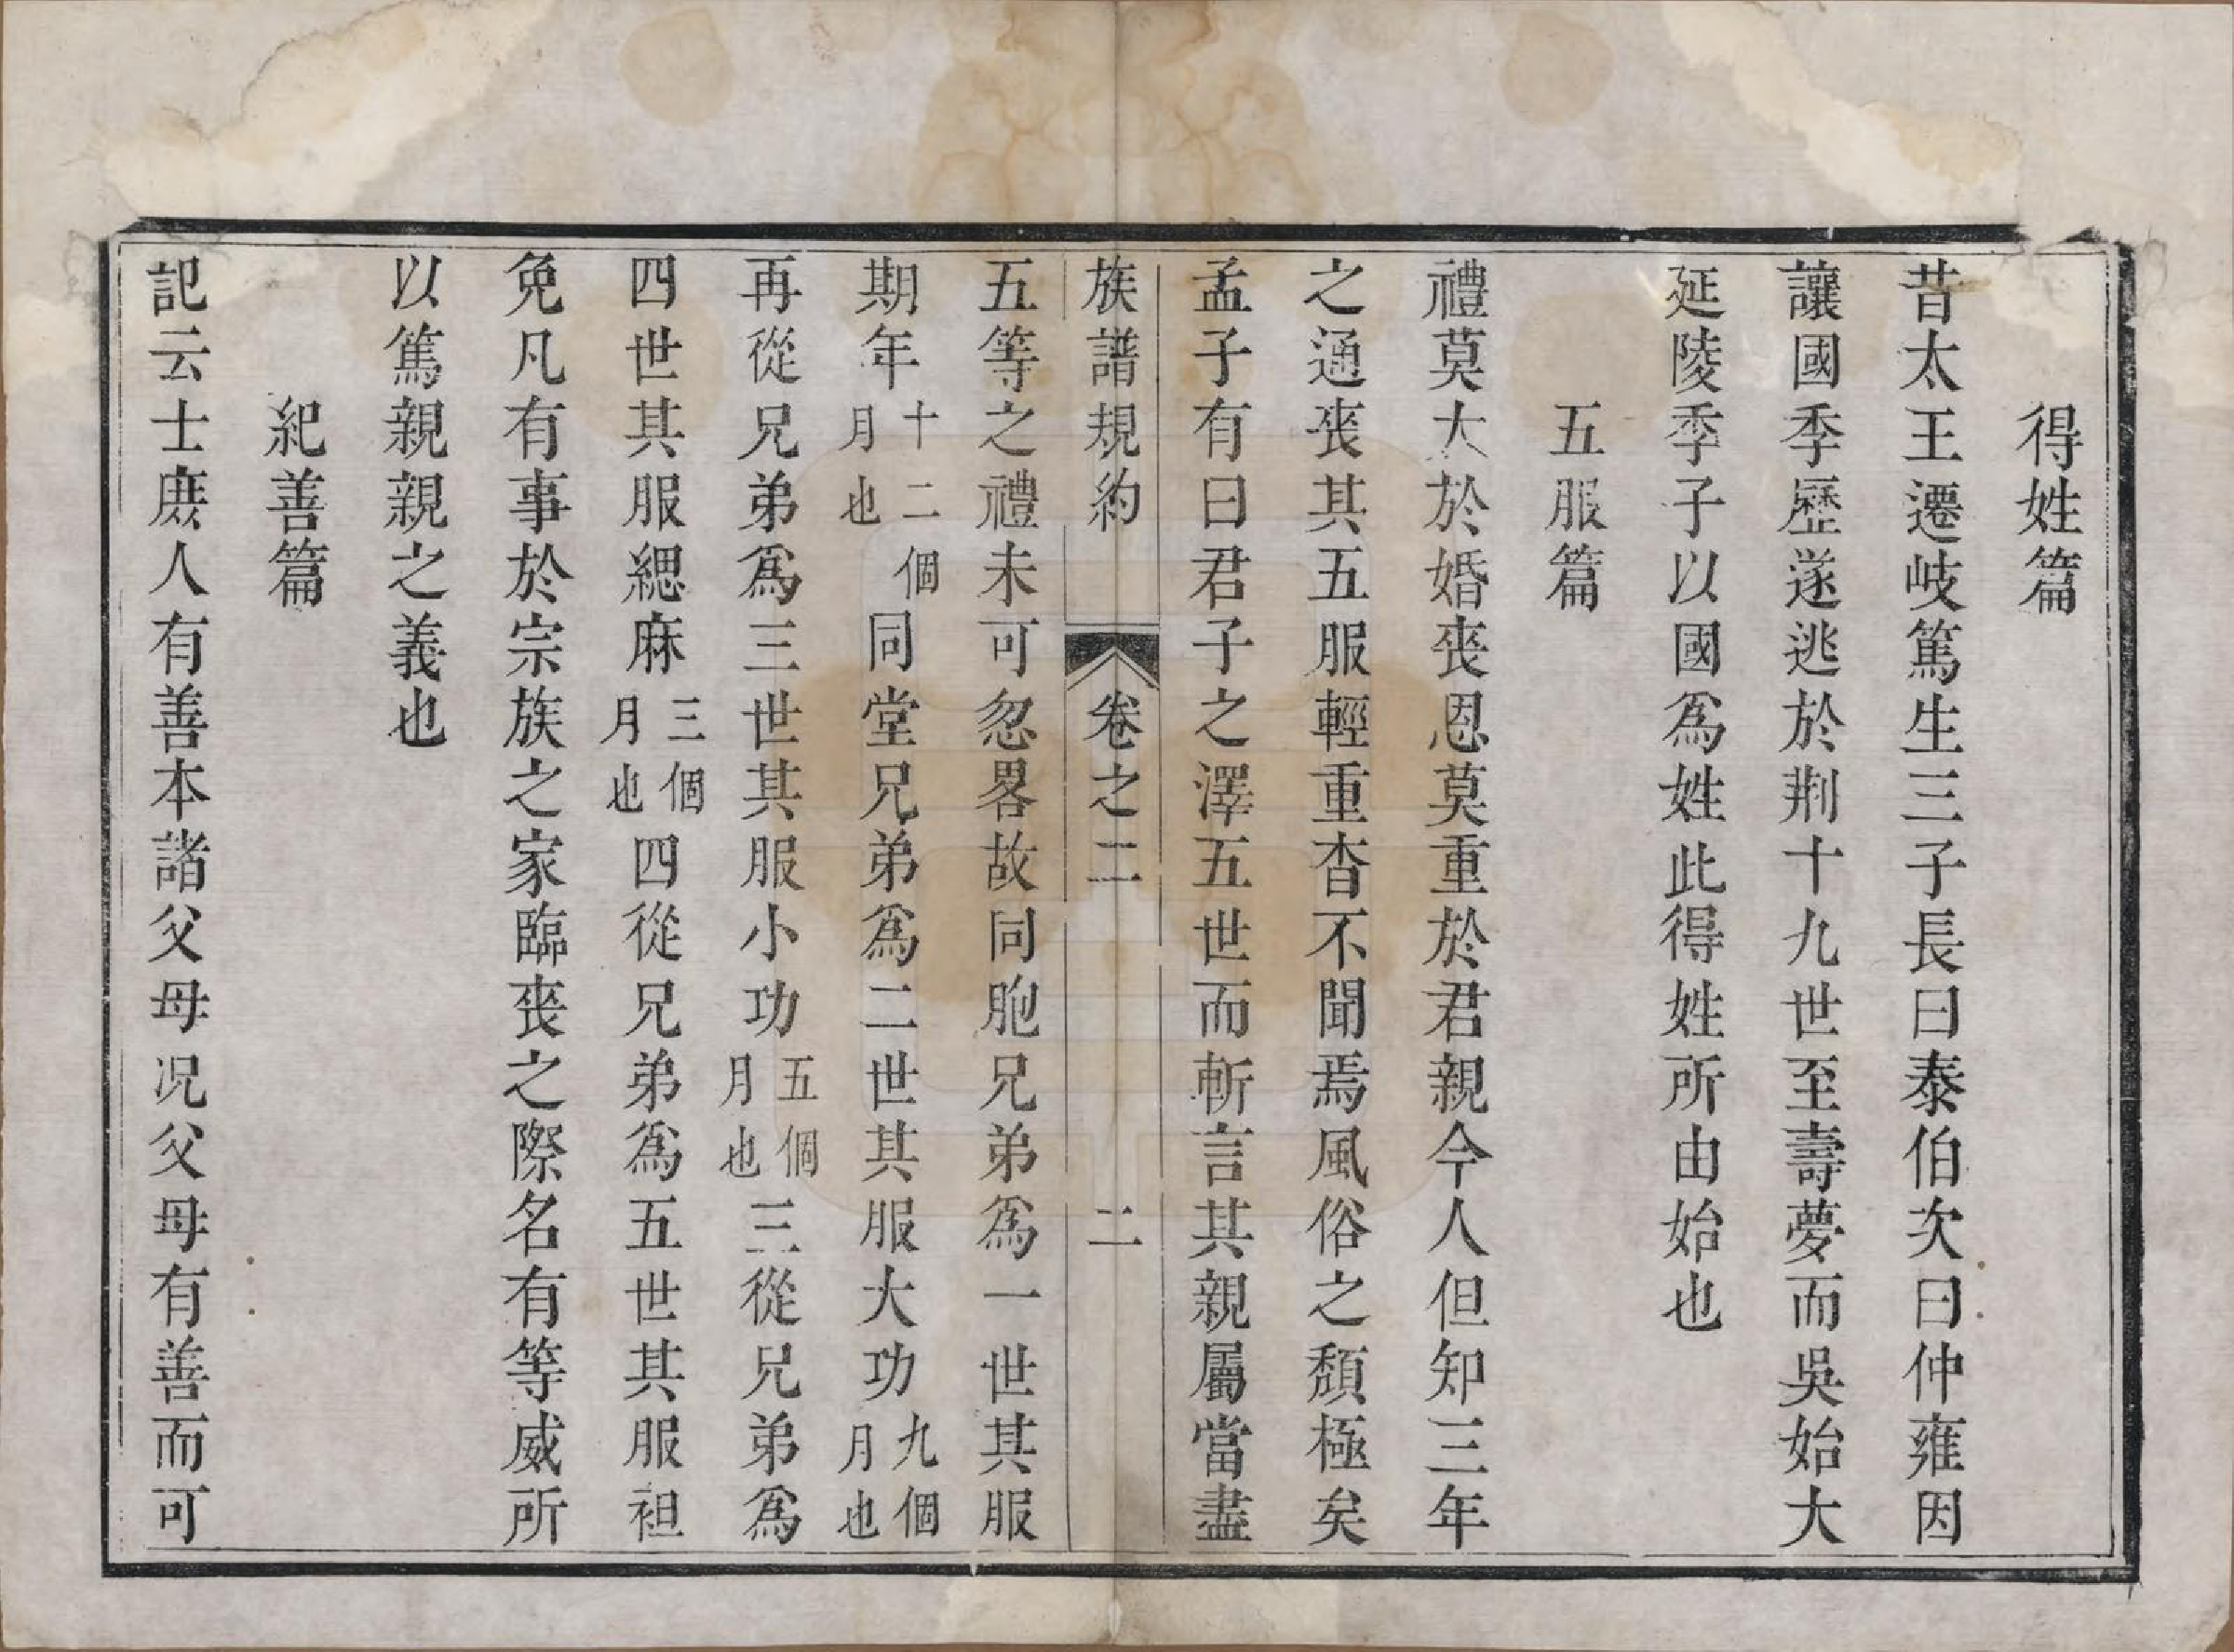 得姓篇
昔太王遷岐篤生三子長曰泰伯次曰仲雍因
讓國季歷遂逃於荆十九世至壽夢而吳始大
延陵季子以國爲姓此得姓所由始也
五服篇
禮莫大於婚喪恩莫重於君親今人但知三年
之通喪其五服輕重杳不聞焉風俗之頹極矣
孟子有曰君子之澤五世而斬言其親屬當盡
族譜規約 卷之二 二
五等之禮未可忽畧故同胞兄弟爲一世其服
期年十二個月也同堂兄弟爲二世其服大功九個月也
再從兄弟爲三世其服小功五個月也三從兄弟爲
四世其服緦麻三個月也四從兄弟爲五世其服袒
免凡有事於宗族之家臨喪之際名有等威所
以篤親親之義也
紀善篇
記云士庶人有善本諸父母况父母有善而可